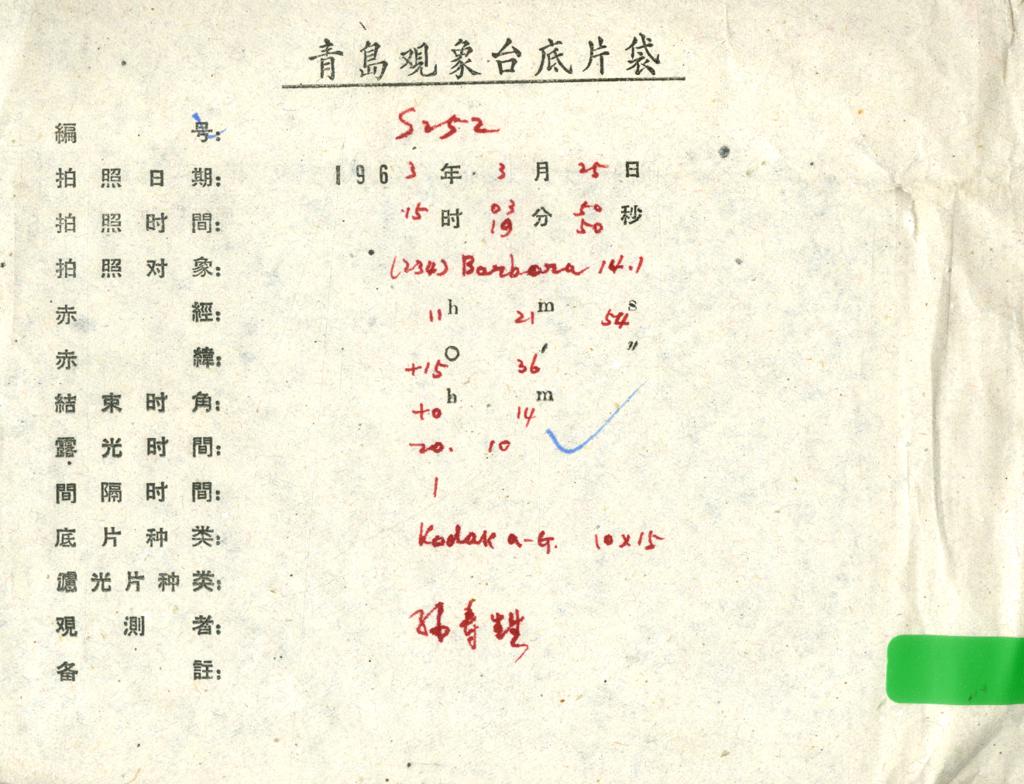 青島观象台底片袋
編号: S252
拍照日期: 1963年3月25日
拍照时間: 15时03分50秒
19 50
拍照对象: (234) Barbara 14.1
赤經: 11h 21m 54s
赤緯: +15° 36′ ″
結束时角: +0h 14m
露光时間: 20. 10
間隔时間: 1
底片种类: Kodak a-G. 10x15
濾光片种类:
观測者: 孙寿
备註: